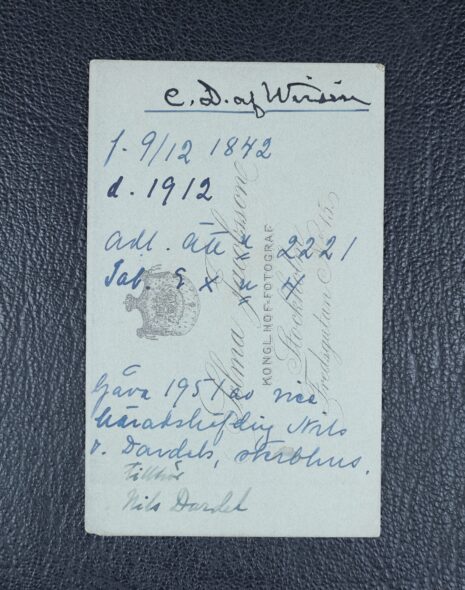 C. D. af Wirsén
f. 9/12 1842
d. 1912
Adl. ätt n:r 2221
Tab.
Gåva 1951 av vice
häradshöfding Nils
v. Dardel,
Tillhör
Nils Dardel
Selma Jacobsson
KONGL. HOF-FOTOGRAF
Stockholm
Fredsgatan N:o 15.